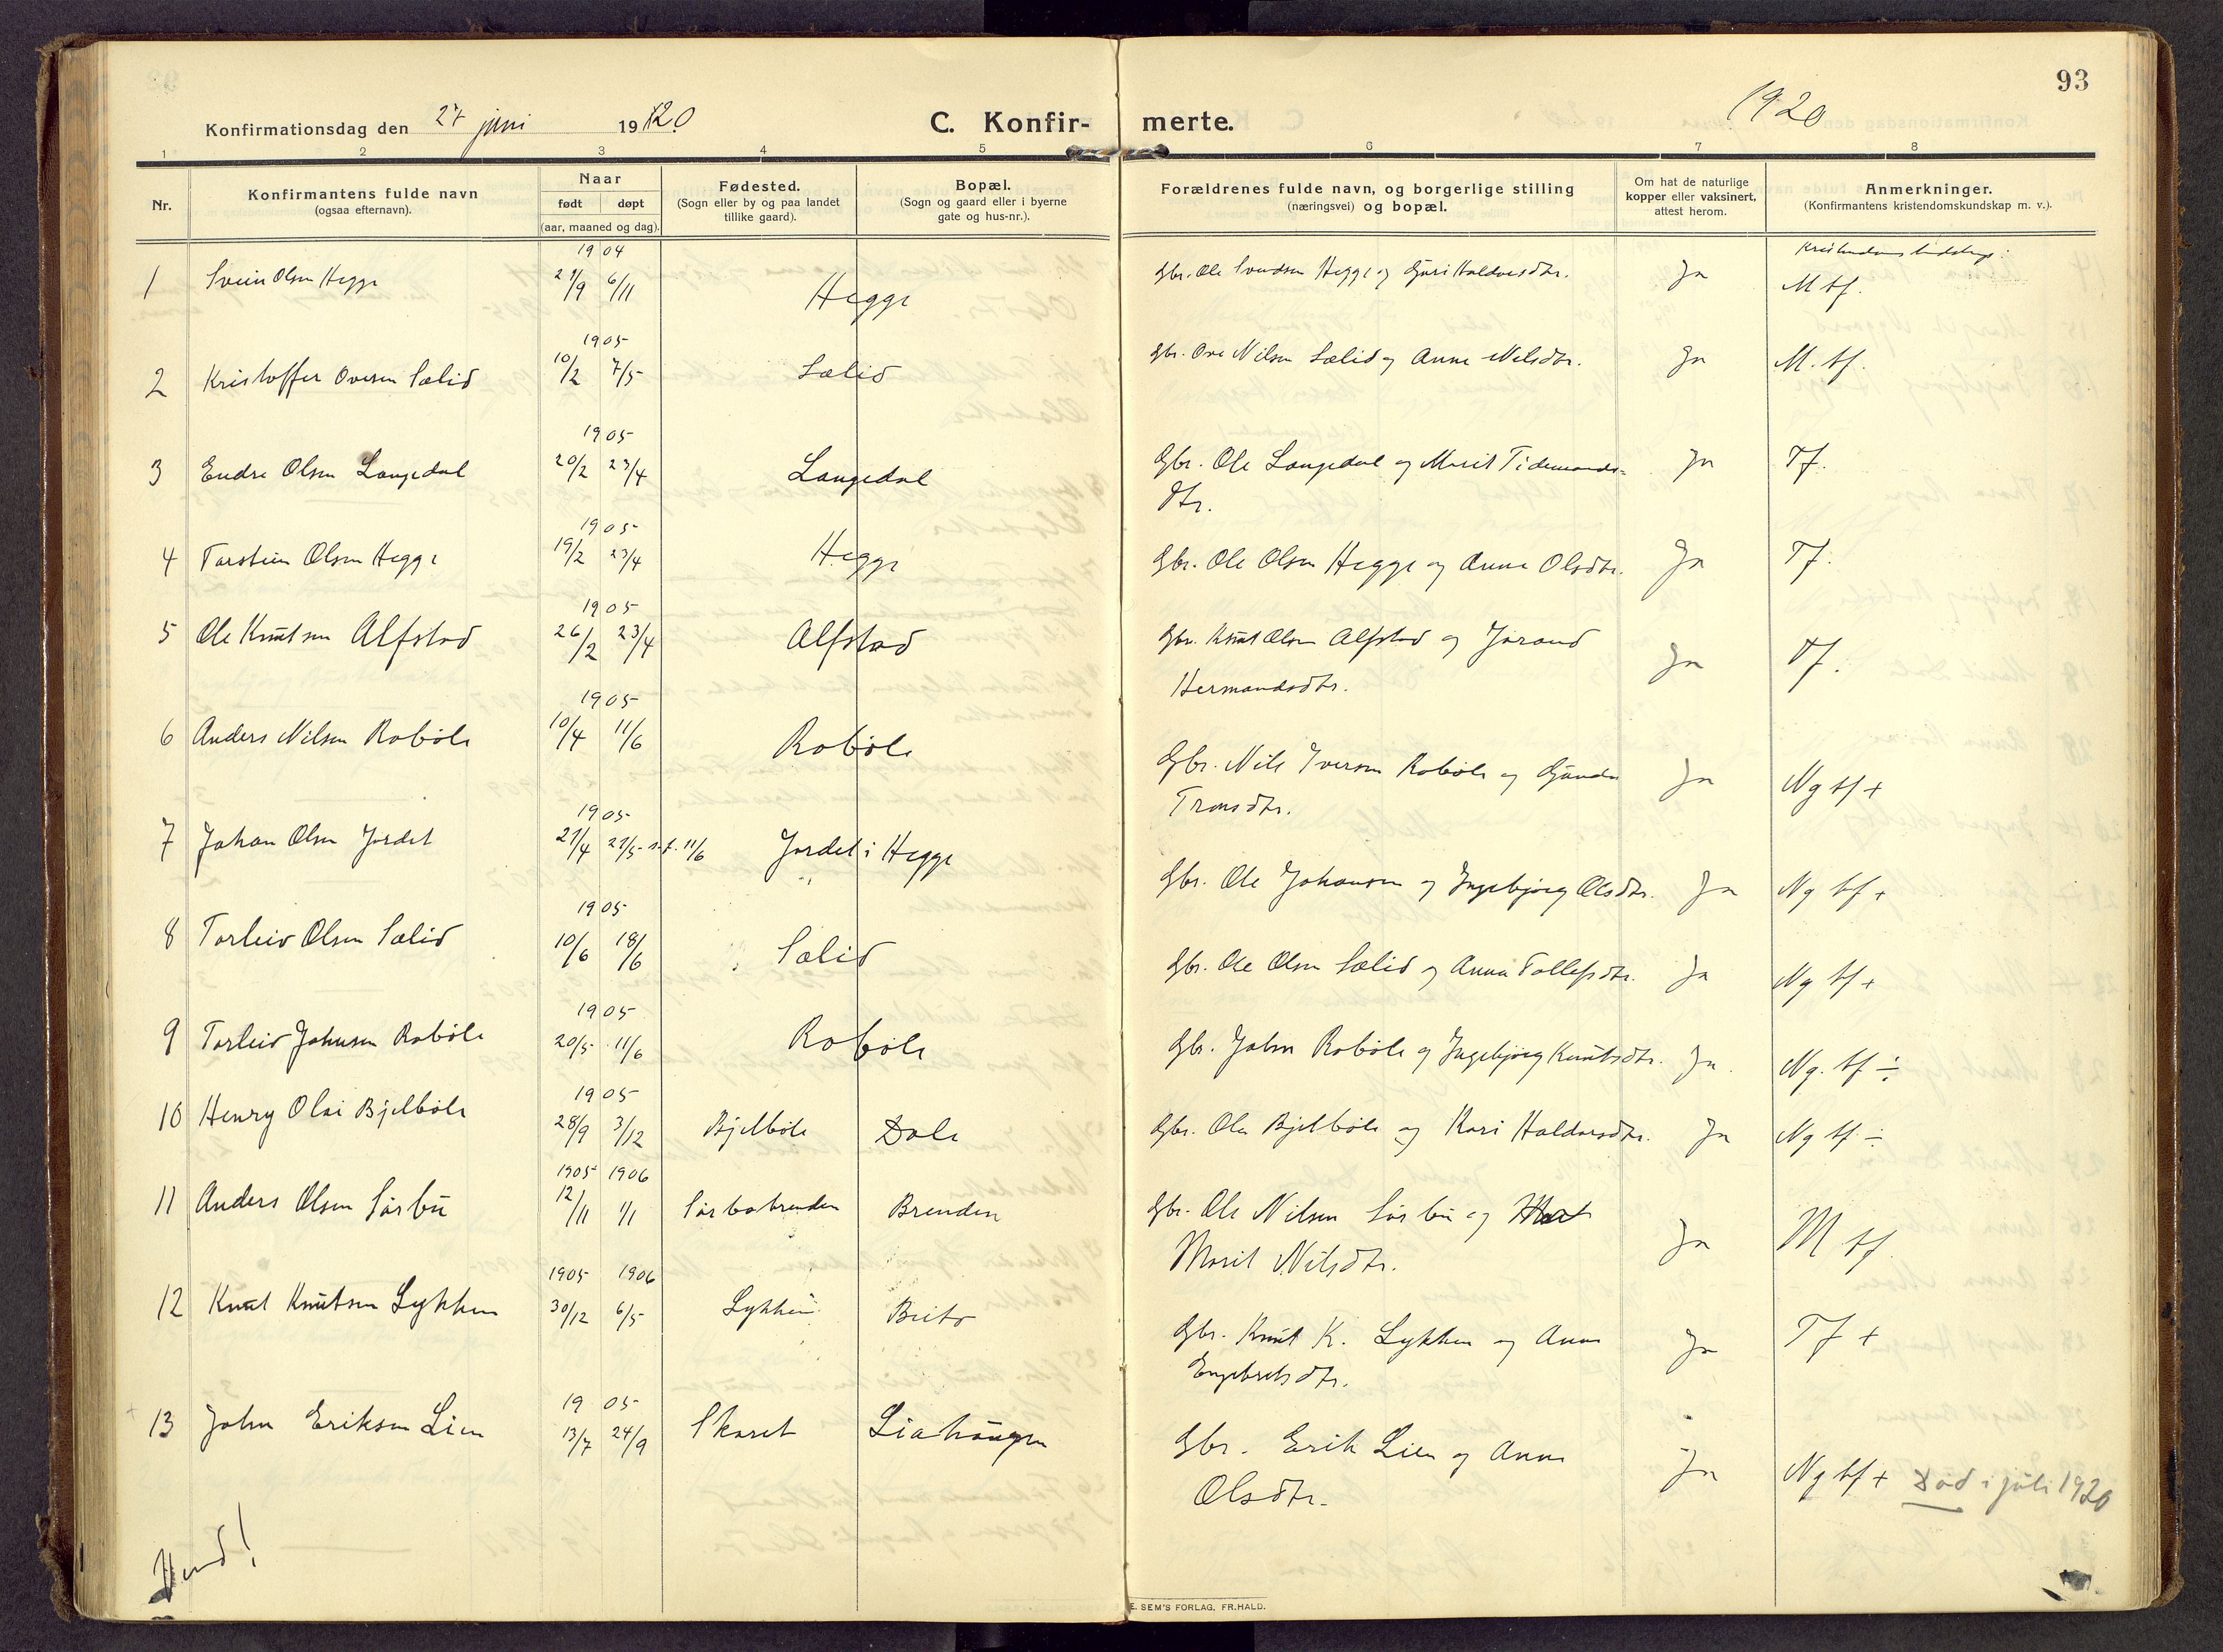 93
Konfirmationsdag den 27 juni 1920
C. Konfir-
merte.
1920
1 2 3 4 5 6 7 8
Nr.
Konfirmantens fulde navn
(ogsaa efternavn).
Naar
født døpt
(aar, maaned og dag).
Fødested.
(Sogn eller by og paa landet
tillike gaard).
Bopæl.
(Sogn og gaard eller i byerne
gate og hus-nr.).
Forældrenes fulde navn, og borgerlige stilling
(næringsvei) og bopæl.
Om hat de naturlige
kopper eller vaksinert,
attest herom.
Anmerkninger.
(Konfirmantens kristendomskundskap m. v.).
1904
1 Svein Olsen Hegge 29/9 6/11 Hegge Gbr. Ole Svendsen Hegge og Guri Haldorsdtr. Ja M tf.
1905
2 Kristoffer Ovesen Sælid 10/2 7/5 Sælid Gbr. Ove Nilsen Sælid og Anne Nilsdtr. Ja M. tf.
1905
3 Endre Olsen Langedal 20/2 23/4 Langedal Gbr. Ole Langedal og Marit Tidemands-
dtr. Ja Tf.
1905
4 Torstein Olsen Hegge 19/2 23/4 Hegge Gbr. Ole Olsen Hegge og Anne Olsdtr. Ja Tf.
1905
5 Ole Knutsen Alfstad 26/2 23/4 Alfstad Gbr. Knut Olsen Alfstad og Jørand
Hermandsdtr. Ja Tf.
1905
6 Anders Nilsen Robøle 10/4 11/6 Robøle Gbr. Nils Iversen Robøle og Gjønda
Tronsdtr. Ja Ng tf +
1905
7 Johan Olsen Jordet 27/4 27/5 s.f. 11/6 Jordet i Hegge Gbr. Ole Johansen og Ingebjørg Olsdtr. Ja Ng tf +
1905
8 Torleiv Olsen Sælid 10/6 18/6 Sælid Gbr. Ole Olsen Sælid og Anna Tollefsdtr. Ja Ng tf +
1905
9 Torleiv Johnsen Robøle 20/5 11/6 Robøle Gbr. John Robøle og Ingebjørg Knutsdtr. Ja Ng. tf ÷
1905
10 Henry Olai Bjelbøle 28/9 3/12 Bjelbøle Dale Gbr. Ola Bjelbøle og Kari Haldorsdtr. Ja Ng tf ÷
1905 1906
11 Anders Olsen Sørbu 12/11 1/1 Sørbøbrenden Brenden Gbr. Ole Nilsen Sørbu og
Marit Nilsdtr. Ja M tf.
1905 1906
12 Knut Knutsen Lykken 30/12 6/5 Lykken Beito Gbr. Knut K. Lykken og Anne
Engebretsdtr. Ja Tf +
1905
13 John Eriksen Lien 13/7 24/9 Skaret Liahaugen Gbr. Erik Lien og Anne
Olsdtr. Ja Ng tf + Død i juli 1920
Vend!
E. SEM'S FORLAG, FR.HALD.